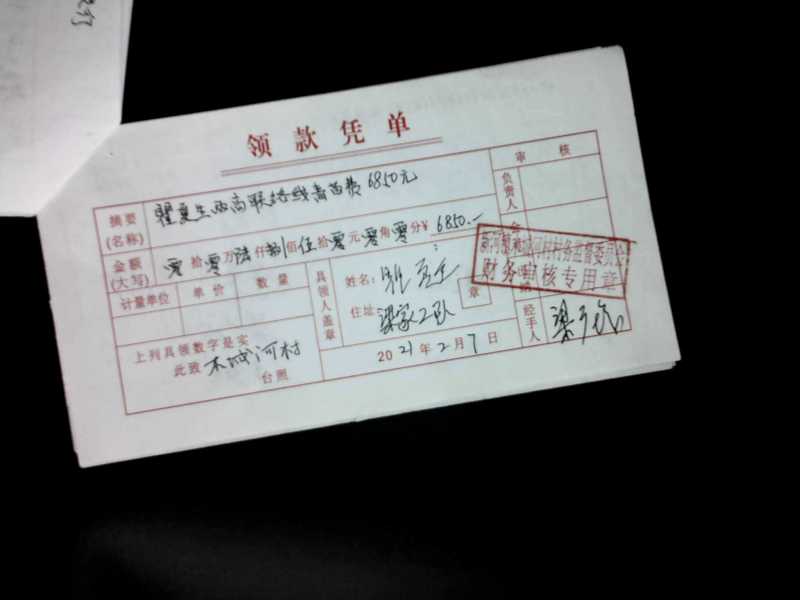 领款凭单
审核
摘要(名称) 瞿夏生西高联络线青苗费6850元
负责人
金额(大写) 零拾零万陆仟捌佰伍拾零元零角零分¥6850.—
计量单位 单价 数量
具领人盖章
姓名:
住址: 梁家2队
章
村务监督委员会
财务审核专用章
上列具领数字是实
此致 木城河村
台照
2021年2月7日
经手人 梁